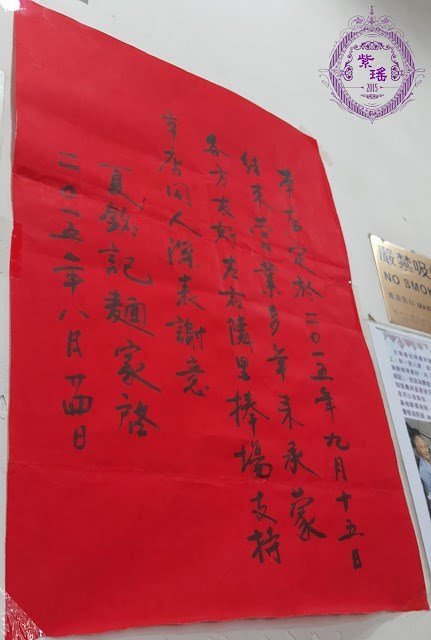 紫
瑤
2015
本店定於二〇一五年九月十五日
結束營業多年來承蒙
各方友好左右隣里捧場支持
本店同人深表謝意
夏銘記麵家啓
二〇一五年八月廿四日
嚴禁吸
NO SMOK